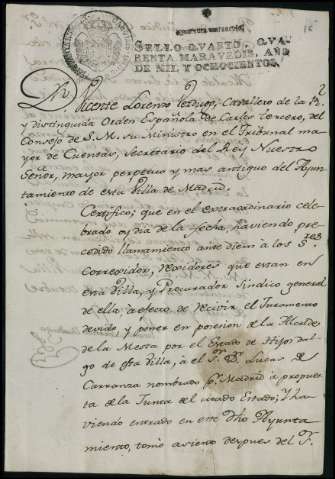 SELLO QVARTO, QVA-
RENTA MARAVEDIS, AÑO
DE MIL Y OCHOCIENTOS.
Dn. Vicente Lorenzo Verdugo, Cavallero de la Rl.
y distinguida Orden Española de Carlos tercero, del
Consejo de S. M. su Ministro en el Tribunal ma-
yor de Cuentas, Secretario del Rey Nuestro
Señor, mayor perpetuo y mas antiguo del Ayun-
tamiento de esta Villa de Madrid.
Certifico; que en el extraordinario cele-
brado oy dia de la fecha, haviendo pre-
cedido llamamiento ante diem a los Sres
Corregidor, Regidores que estan en
esta Villa, y Procurador Sindico general
de ella, a efecto de recivir el Juramento
devido y poner en posesion de la Alcaldia
de la Mesta por el Estado de Hijos dal-
go de esta Villa, a el S. Dn. Lucas de
Carranza nombrado pr. Madrid a propues-
ta de la Junta del citado Estado; y ha-
viendo entrado en este dho Ayunta-
miento, tomó asiento despues del S.